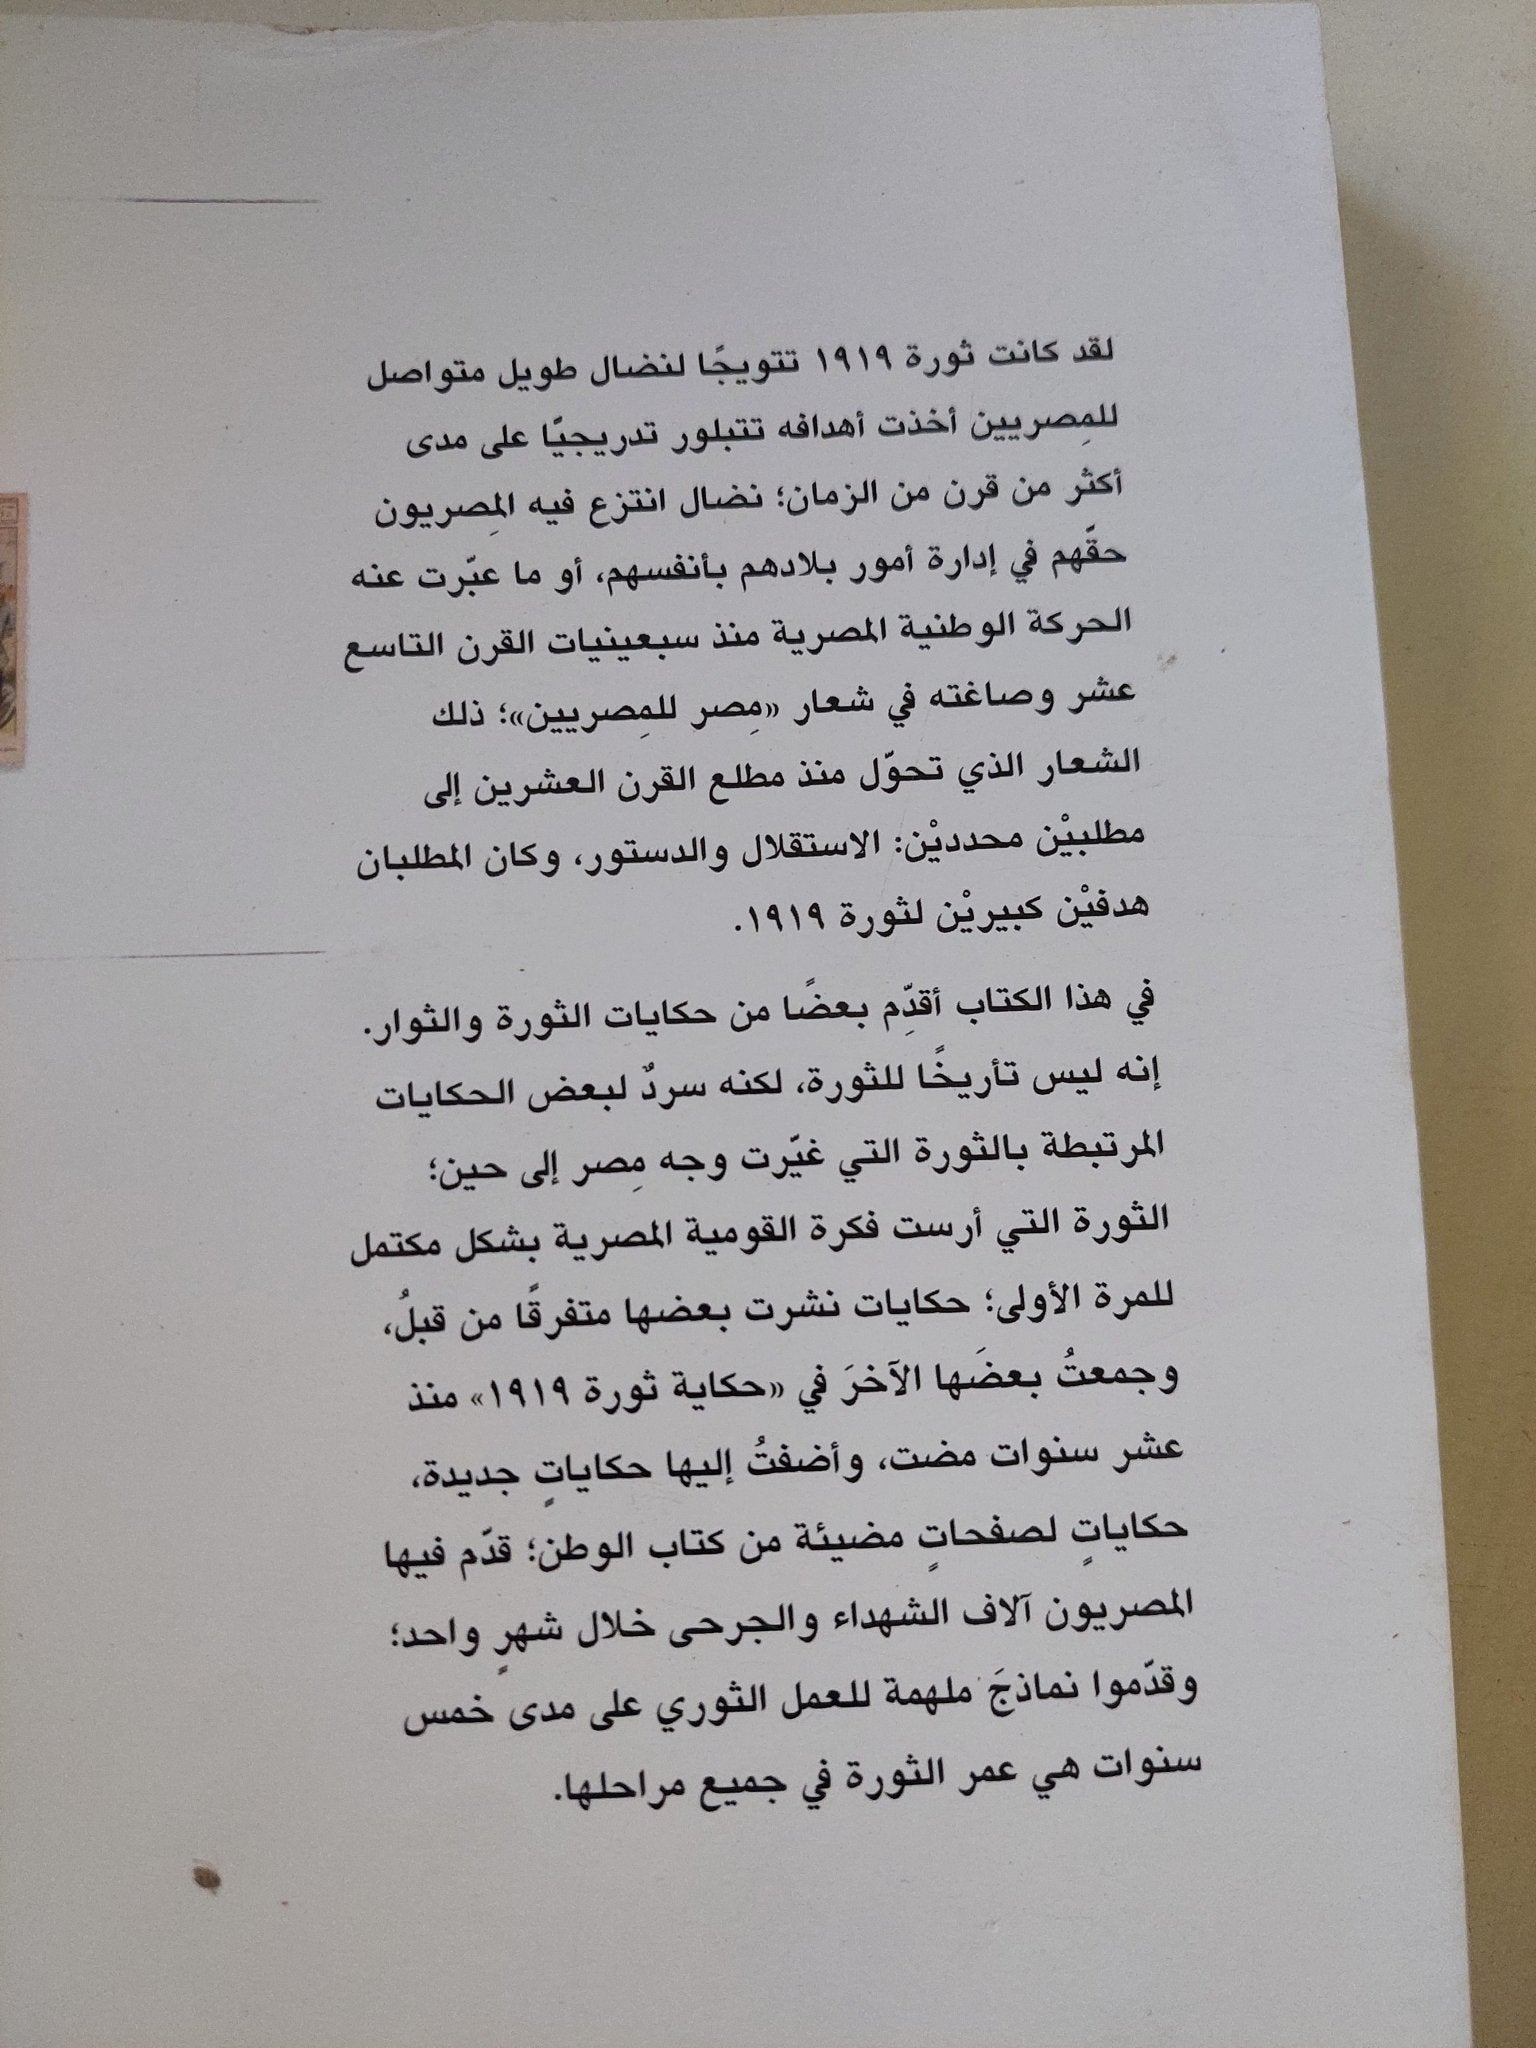 لقد كانت ثورة ١٩١٩ تتويجًا لنضال طويل متواصل
للمِصريين أخذت أهدافه تتبلور تدريجيًا على مدى
أكثر من قرن من الزمان؛ نضال انتزع فيه المِصريون
حقَّهم في إدارة أمور بلادهم بأنفسهم، أو ما عبّرت عنه
الحركة الوطنية المصرية منذ سبعينيات القرن التاسع
عشر وصاغته في شعار «مِصر للمِصريين»؛ ذلك
الشعار الذي تحوّل منذ مطلع القرن العشرين إلى
مطلبيْن محدديْن: الاستقلال والدستور، وكان المطلبان
هدفيْن كبيريْن لثورة ١٩١٩.
في هذا الكتاب أقدِّم بعضًا من حكايات الثورة والثوار.
إنه ليس تأريخًا للثورة، لكنه سردٌ لبعض الحكايات
المرتبطة بالثورة التي غيّرت وجه مِصر إلى حين؛
الثورة التي أرست فكرة القومية المصرية بشكل مكتمل
للمرة الأولى؛ حكايات نشرت بعضها متفرقًا من قبلُ،
وجمعتُ بعضَها الآخرَ في «حكاية ثورة ١٩١٩» منذ
عشر سنوات مضت، وأضفتُ إليها حكاياتٍ جديدة،
حكاياتٍ لصفحاتٍ مضيئة من كتاب الوطن؛ قدّم فيها
المصريون آلاف الشهداء والجرحى خلال شهرٍ واحد؛
وقدّموا نماذجَ ملهمة للعمل الثوري على مدى خمس
سنوات هي عمر الثورة في جميع مراحلها.